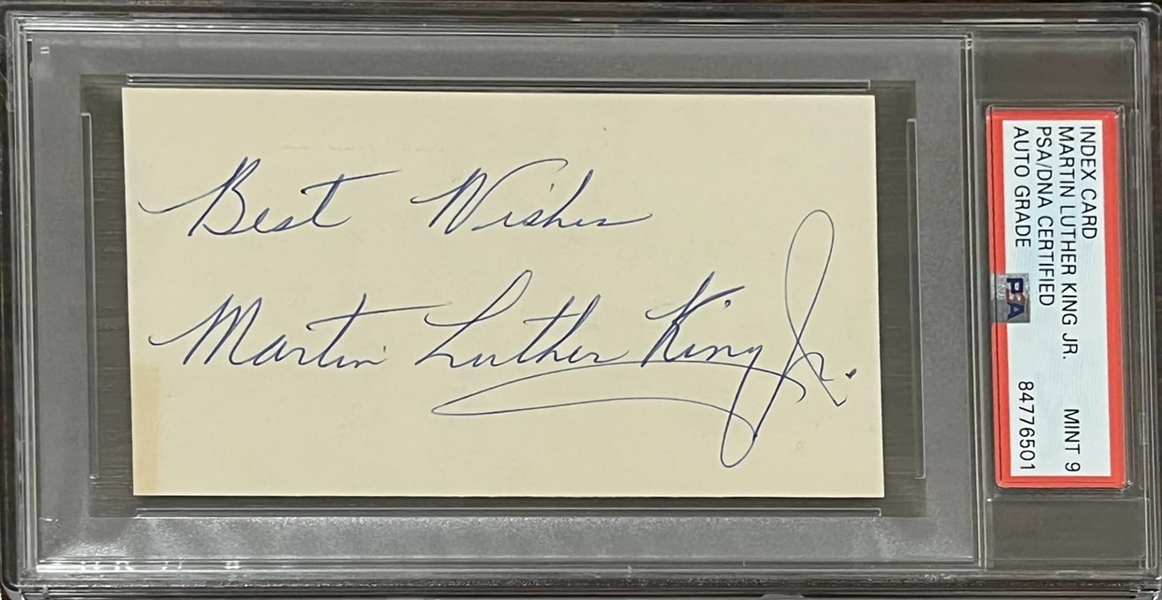 Best Wishes
Martin Luther King Jr.
INDEX CARD
MARTIN LUTHER KING JR.
PSA/DNA CERTIFIED
AUTO GRADE
MINT 9
84776501
PSA